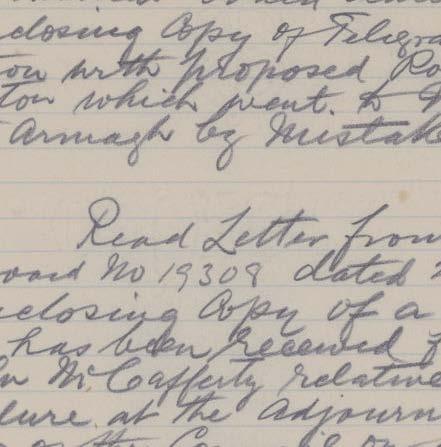 closing Copy of Telegra
ton with proposed Ro
ton which went to
Armagh by Mistake
Read Letter from
oard No 19308 dated
closing Copy of a
has been received f
n McCafferty relative
lure at the Adjourn